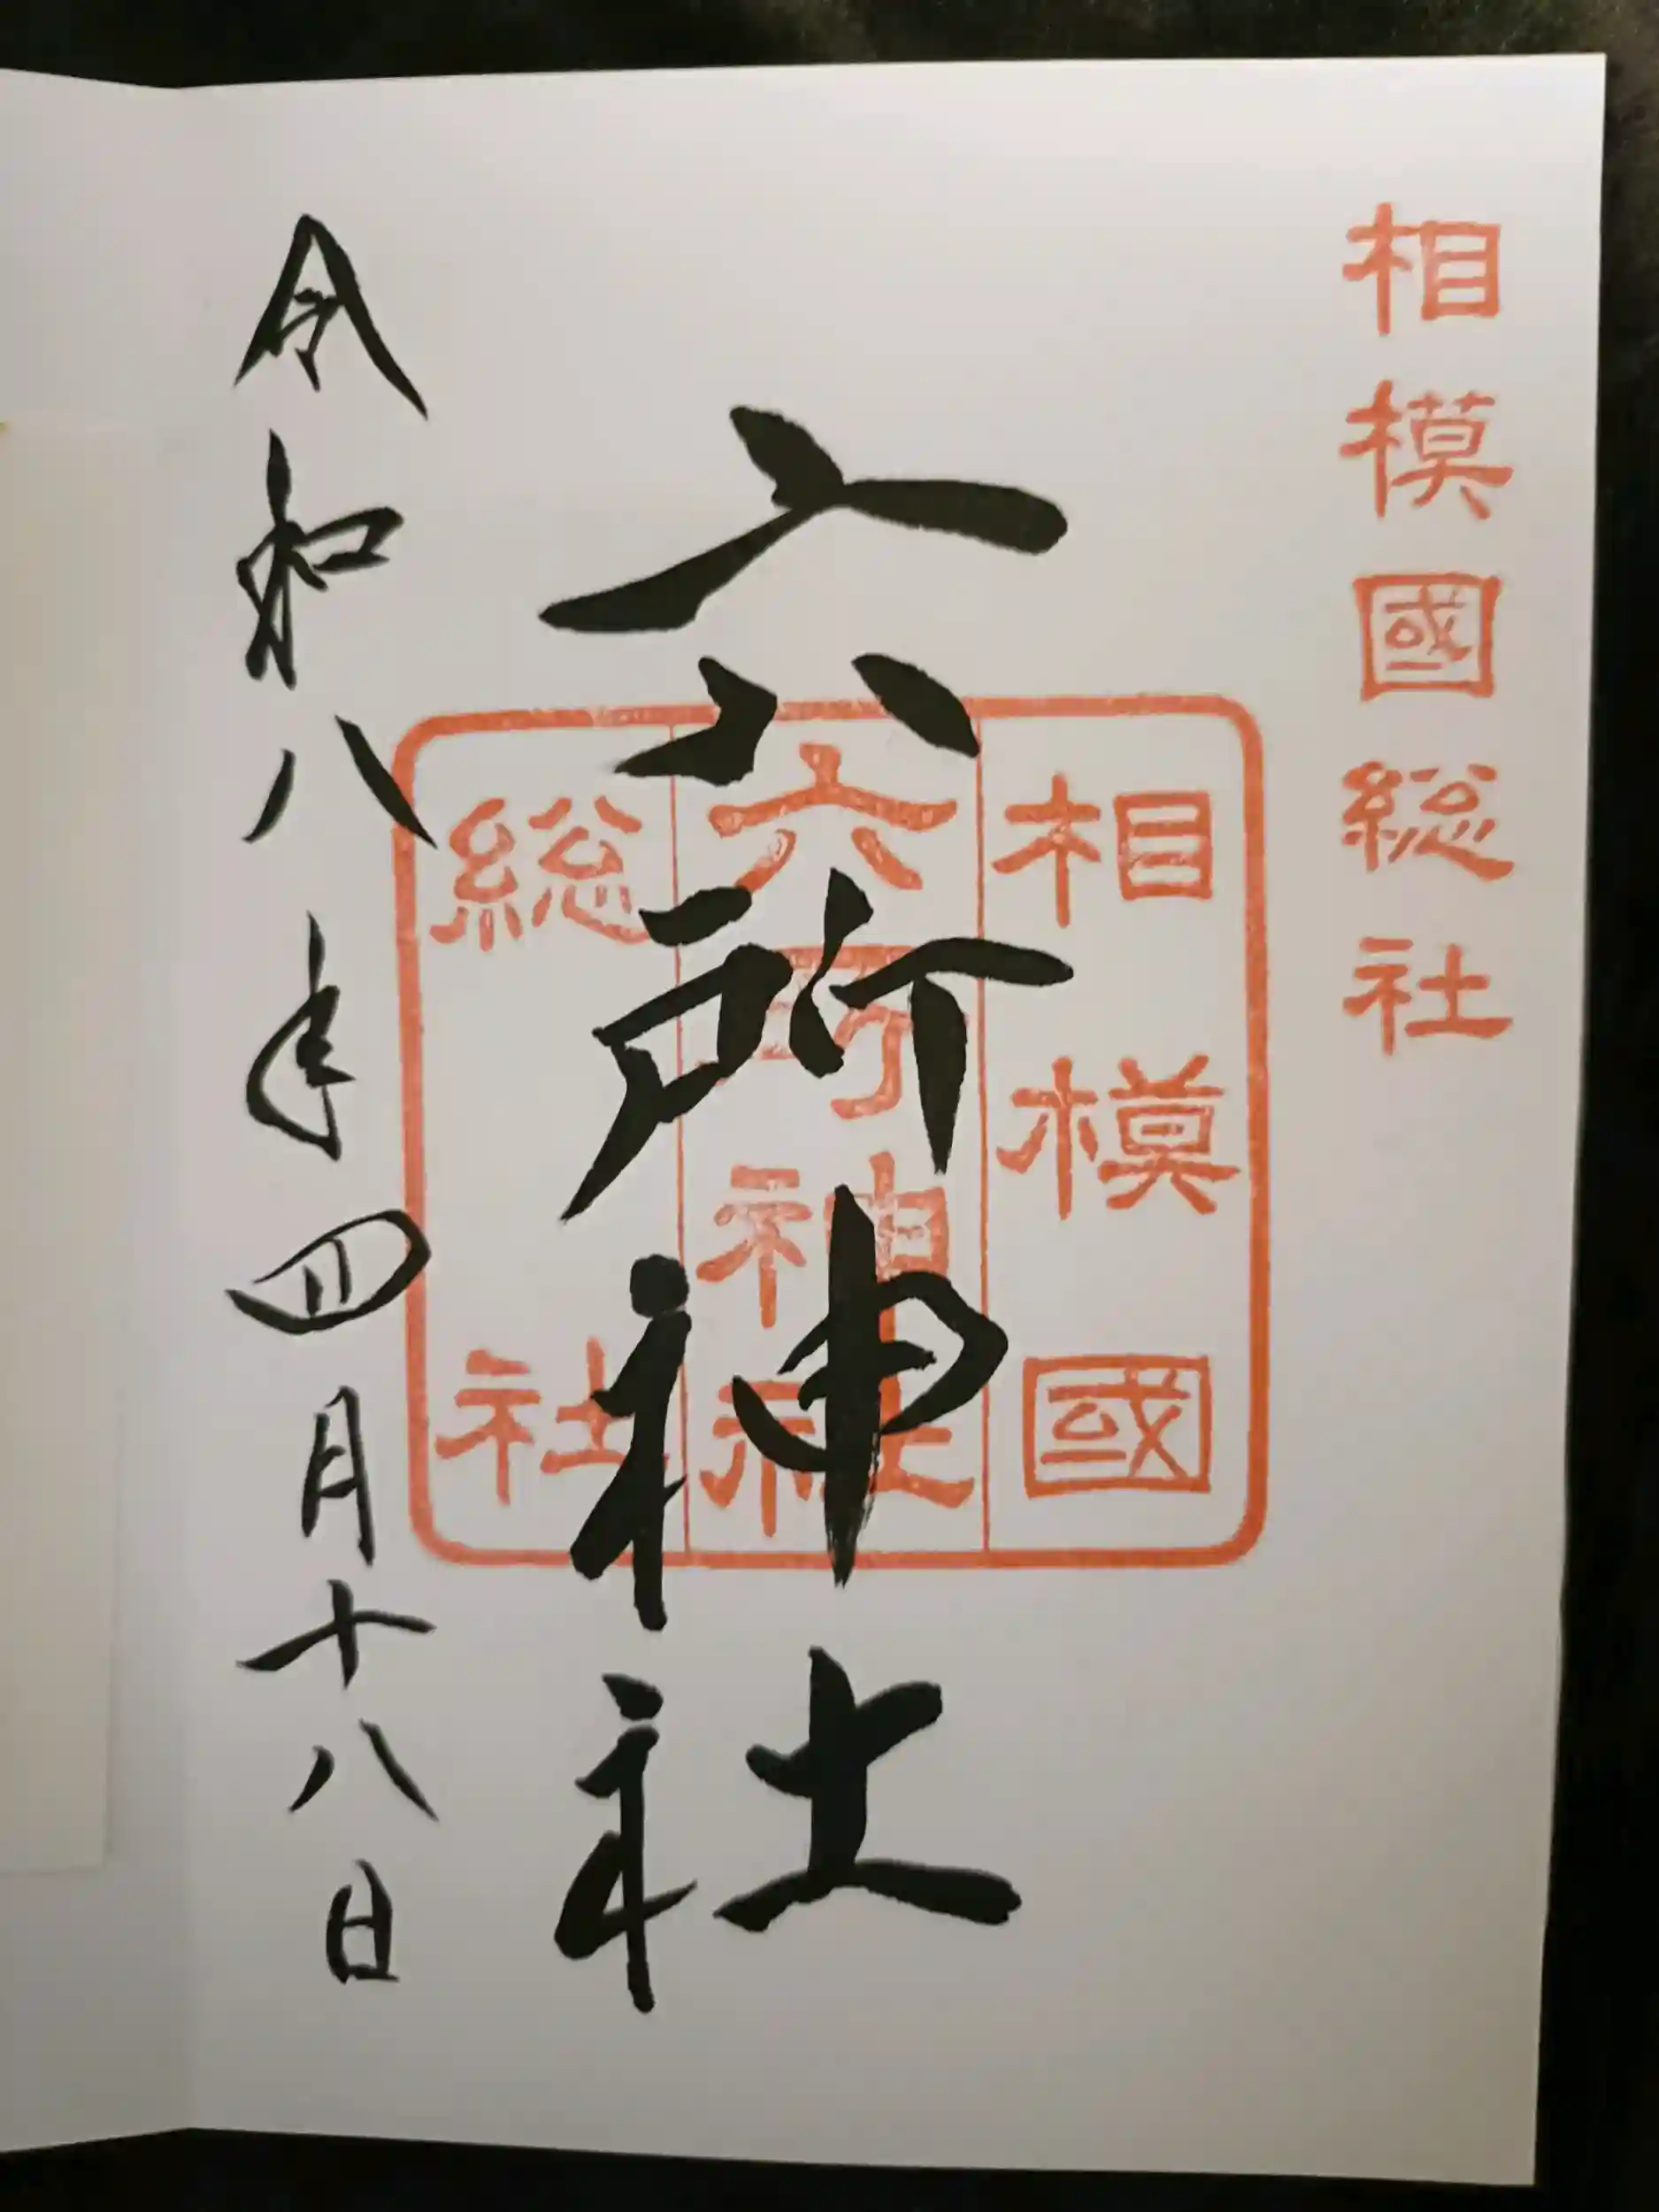 相模國総社
相模國
六所神社
総社
六所神社
令和八年四月十八日